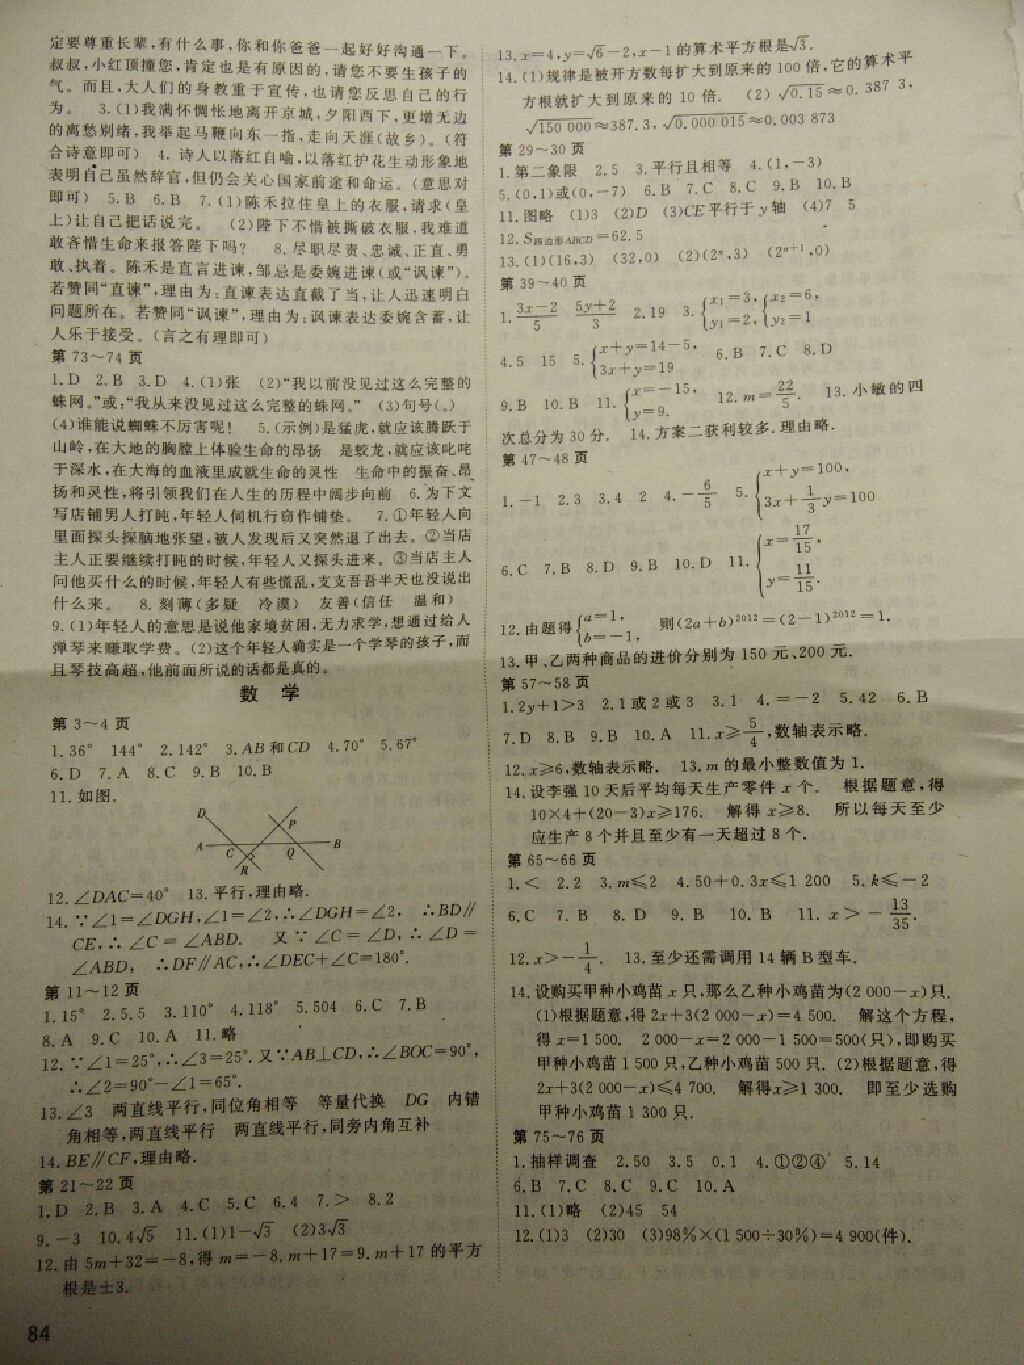 定要尊重长辈,有什么事,你和你爸爸一起好好沟通一下。
叔叔,小红顶撞您,肯定也是有原因的,请您不要生孩子的
气。而且,大人们的身教重于宣传,也请您反思自己的行
为。 3.(1)我满怀惆怅地离开京城,夕阳西下,更增无边
的离愁别绪,我举起马鞭向东一指,走向天涯(故乡)。(符
合诗意即可) 4. 诗人以落红自喻,以落红护花生动形象地
表明自己虽然辞官,但仍会关心国家前途和命运。(意思对
即可) 5.B 6.B 7.(1)陈禾拉住皇上的衣服,请求(皇
上)让自己把话说完。 (2)陛下不惜被撕破衣服,我难道
敢吝惜生命来报答陛下吗? 8.尽职尽责、忠诚、正直、勇
敢、执着。陈禾是直言进谏,邹忌是委婉进谏(或“讽谏”)。
若赞同“直谏”,理由为:直谏表达直截了当,让人迅速明白
问题所在。若赞同“讽谏”,理由为:讽谏表达委婉含蓄,让
人乐于接受。(言之有理即可)
第 73~74 页
1.D 2.B 3.D 4.(1)张 (2)“我以前没见过这么完整的
蛛网。”或:“我从来没见过这么完整的蛛网。” (3)句号(。)
(4)谁能说蜘蛛不厉害呢! 5.(示例)是猛虎,就应该腾跃于
山岭,在大地的胸膛上体验生命的昂扬 是蛟龙,就应该叱咤
于深水,在大海的血液里成就生命的灵性 生命中的振奋、昂
扬和灵性,将引领我们在人生的历程中阔步向前 6.为下文
写店铺男人打盹,年轻人伺机行窃作铺垫。 7.①年轻人向
里面探头探脑地张望,被人发现后又突然退了出去。②当店
主人正要继续打盹的时候,年轻人又探头进来。③当店主人
问他买什么的时候,年轻人有些慌乱,支支吾吾半天也没说出
什么来。 8.刻薄(多疑 冷漠) 友善(信任 温和)
9.(1)年轻人的意思是说他家境贫困,无力求学,想通过给人
弹琴来赚取学费。(2)这个年轻人确实是一个学琴的孩子,而
且琴技高超,他前面所说的话都是真的。
数 学
第 3~4 页
1.36° 144° 2.142° 3.AB 和 CD 4.70° 5.67°
6.D 7.A 8.C 9.B 10.B
11.如图.
D P
A C Q B
R
12.∠DAC=40° 13.平行,理由略.
14.∵∠1=∠DGH,∠1=∠2,∴∠DGH=∠2, ∴BD∥
CE,∴∠C=∠ABD. 又∵∠C=∠D,∴∠D=
∠ABD, ∴DF∥AC,∴∠DEC+∠C=180°.
第 11~12 页
1.15° 2.5.5 3.110° 4.118° 5.504 6.C 7.B
8.A 9.C 10.A 11.略
12.∵∠1=25°,∴∠3=25°.又∵AB⊥CD,∴∠BOC=90°,
∴∠2=90°-∠1=65°.
13.∠3 两直线平行,同位角相等 等量代换 DG 内错
角相等,两直线平行 两直线平行,同旁内角互补
14.BE∥CF,理由略.
第 21~22 页
1.D 2.B 3.A 4.C 5.C 6.4 7.> 8.2
9.-3 10.4√5 11.(1)1-√3 (2)3√3
12.由 5m+32=-8,得 m=-8.m+17=9.m+17 的平方
根是±3.
84
13.x=4,y=√6-2,x-1 的算术平方根是√3.
14.(1)规律是被开方数每扩大到原来的 100 倍,它的算术平
方根就扩大到原来的 10 倍. (2) √0.15≈0.387 3,
√150 000≈387.3,√0.000 015≈0.003 873
第 29~30 页
1.第二象限 2.5 3.平行且相等 4.(1,-3)
5.(0,1)或(0,-7) 6.B 7.C 8.C 9.B 10.B
11.图略 (1)3 (2)D (3)CE 平行于 y 轴 (4)7 5
12.S四边形ABCD=62.5
13.(1)(16,3) (32,0) (2)(2ⁿ,3) (2ⁿ⁺¹,0)
第 39~40 页
1.(3x-2)/5 (5y+2)/3 2.19 3.{x₁=3, y₁=2, {x₂=6, y₂=1
4.5 15 5.{x+y=14-5, 3x+y=19 6.B 7.C 8.D
9.B 10.B 11.{x=-15, y=9. 12.m=22/5. 13.小敏的四
次总分为 30 分. 14.方案二获利较多.理由略.
第 47~48 页
1.-1 2.3 3.4 2 4.-6/5 5.{x+y=100, 3x+1/3 y=100
6.C 7.B 8.D 9.B 10.D 11.{x=17/15, y=11/15.
12.由题得{a=1, b=-1, 则(2a+b)²⁰¹²=(2-1)²⁰¹²=1.
13.甲、乙两种商品的进价分别为 150 元、200 元.
第 57~58 页
1.2y+1>3 2.1 或 2 或 3 3.1 4.=-2 5.42 6.B
7.D 8.B 9.B 10.A 11.x≥5/4,数轴表示略.
12.x≥6,数轴表示略. 13.m 的最小整数值为 1.
14.设李强 10 天后平均每天生产零件 x 个. 根据题意,得
10×4+(20-3)x≥176. 解得 x≥8. 所以每天至少
应生产 8 个并且至少有一天超过 8 个.
第 65~66 页
1.< 2.2 3.m≤2 4.50+0.3x≤1 200 5.k≤-2
6.C 7.B 8.D 9.B 10.B 11.x>-13/35.
12.x>-1/4. 13.至少还需调用 14 辆 B 型车.
14.设购买甲种小鸡苗 x 只,那么乙种小鸡苗为(2 000-x)只.
(1)根据题意,得 2x+3(2 000-x)=4 500. 解这个方程,
得 x=1 500. 2 000-x=2 000-1 500=500(只),即购买
甲种小鸡苗 1 500 只,乙种小鸡苗 500 只. (2)根据题意,得
2x+3(2 000-x)≤4 700. 解得x≥1 300. 即至少选购
甲种小鸡苗 1 300 只.
第 75~76 页
1.抽样调查 2.50 3.5 0.1 4.①②④ 5.14
6.B 7.C 8.C 9.C 10.A
11.(1)略 (2)45 54
12.(1)3 (2)30 (3)98%×(1 500÷30%)=4 900(件).